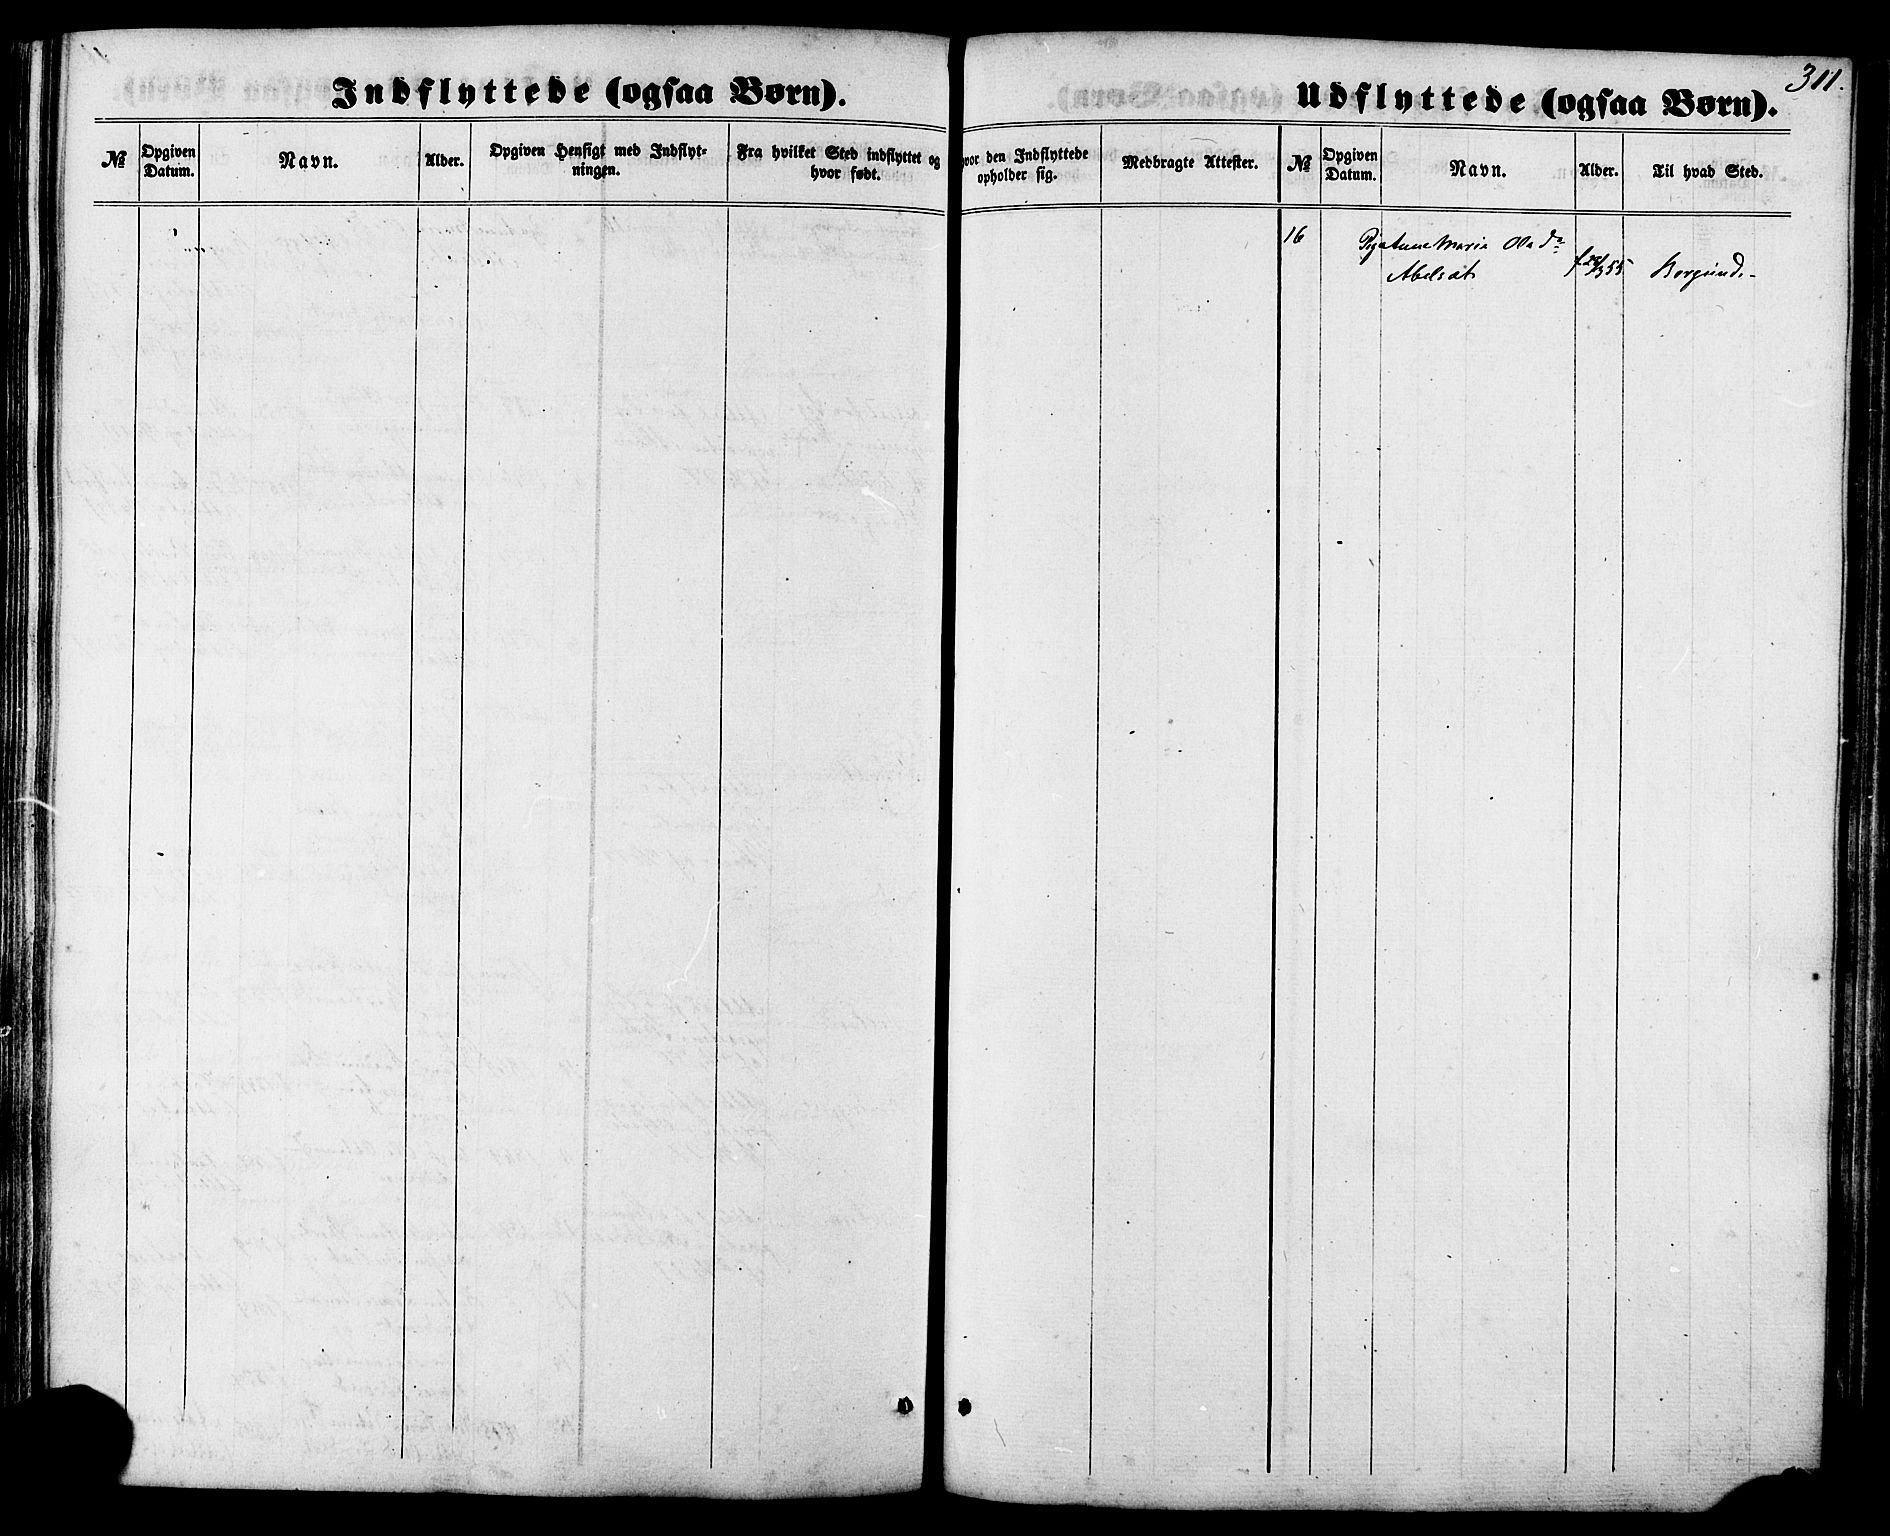 311.
Indflyttede (ogsaa Børn).
Udflyttede (ogsaa Børn).
№
Opgiven
Datum.
Navn.
Alder.
Opgiven Hensigt med Indflyt-
ningen.
Fra hvilket Sted indflyttet og
hvor født.
vor den Indflyttede
opholder sig.
Medbragte Attester.
№
Opgiven
Datum.
Navn.
Alder.
Til hvad Sted.
16
Maria Ola
f 55
Borgund.